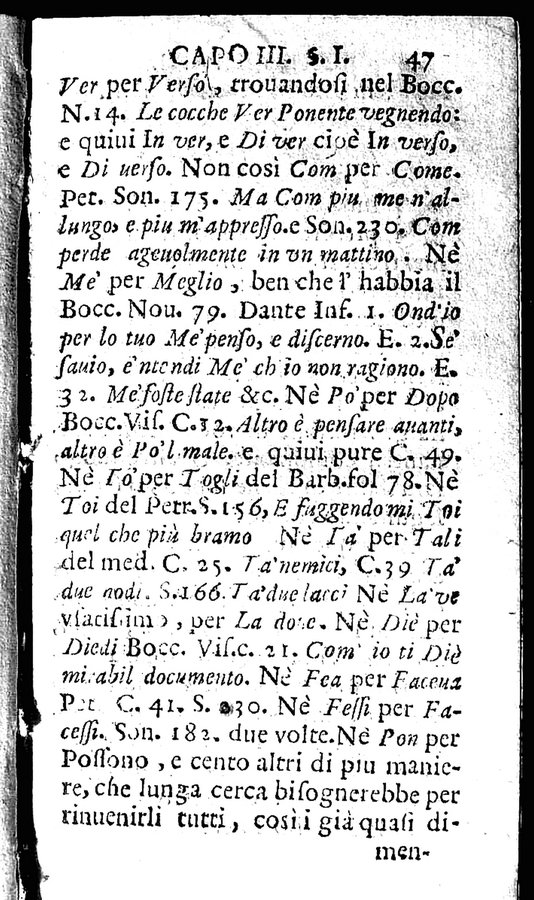 CAPO III. S. I. 47
Ver per Verſo, trouandoſi nel Bocc.
N.14. Le cocche Ver Ponente vegnendo:
e quiui In ver, e Di ver cioè In verſo,
e Di uerſo. Non così Com per Come.
Pet. Son. 175. Ma Com piu me n'al-
lungo, e piu m'appreſſo.e Son.230. Com
perde ageuolmente in vn mattino. Nè
Me' per Meglio, ben che l' habbia il
Bocc. Nou. 79. Dante Inf. 1. Ond'io
per lo tuo Me' penſo, e diſcerno. E. 2.Se'
ſauio, e'ntendi Me' ch io non ragiono. E.
32. Me' foſte ſtate &c. Nè Po' per Dopo
Bocc.Viſ. C.32. Altro è penſare auanti,
altro è Po'l male. e quiui pure C. 49.
Nè To' per Togli del Barb.fol 78. Nè
Toi del Petr.S.156, E fuggendo mi Toi
quel che più bramo Nè Ta' per Tali
del med. C. 25. Ta' nemici, C.39 Ta'
due nodi. S.166. Ta' due lacci Nè La've
vſaciſſimo, per La doue. Nè Diè per
Diedi Bocc. Viſ.c. 21. Com' io ti Diè
mirabil documento. Nè Fea per Faceua
Pet C. 41. S. 230. Nè Feſſi per Fa-
ceſſi. Son. 182. due volte.Nè Pon per
Poſſono, e cento altri di piu manie-
re, che lunga cerca biſognerebbe per
rinuenirli tutti, così i già quaſi di-
men-